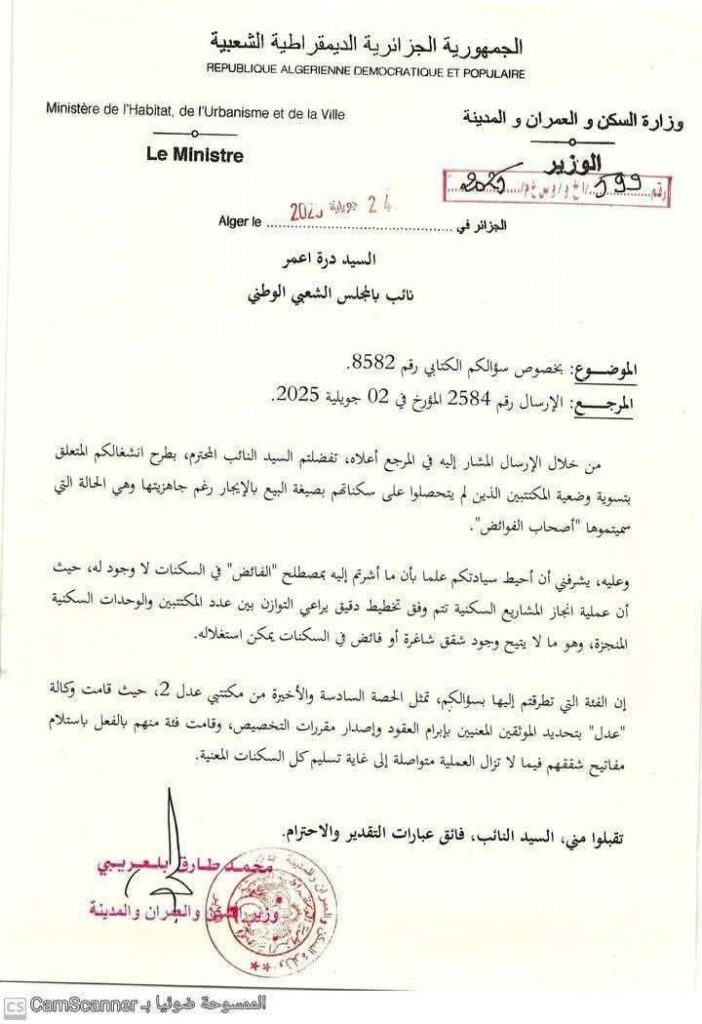 الجمهورية الجزائرية الديمقراطية الشعبية
REPUBLIQUE ALGERIENNE DEMOCRATIQUE ET POPULAIRE
وزارة السكن و العمران و المدينة
Ministère de l'Habitat, de l'Urbanisme et de la Ville
الوزير
Le Ministre
رقم 599 /ا خ و/و س ع م/ 2025
الجزائر في 24 جويلية 2025 Alger le
السيد درة اعمر
نائب بالمجلس الشعبي الوطني
الموضوع: بخصوص سؤالكم الكتابي رقم 8582.
المرجع: الإرسال رقم 2584 المؤرخ في 02 جويلية 2025.
من خلال الإرسال المشار إليه في المرجع أعلاه، تفضلتم السيد النائب المحترم، بطرح انشغالكم المتعلق
بتسوية وضعية المكتتبين الذين لم يتحصلوا على سكناتهم بصيغة البيع بالإيجار رغم جاهزيتها وهي الحالة التي
سميتموها "أصحاب الفوائض".
وعليه، يشرفني أن أحيط سيادتكم علما بأن ما أشرتم إليه بمصطلح "الفائض" في السكنات لا وجود له، حيث
أن عملية انجاز المشاريع السكنية تتم وفق تخطيط دقيق يراعي التوازن بين عدد المكتتبين والوحدات السكنية
المنجزة، وهو ما لا يتيح وجود شقق شاغرة أو فائض في السكنات يمكن استغلاله.
إن الفئة التي تطرقتم إليها بسؤالكم، تمثل الحصة السادسة والأخيرة من مكتتبي عدل 2، حيث قامت وكالة
"عدل" بتحديد الموثقين المعنيين بإبرام العقود وإصدار مقررات التخصيص، وقامت فئة منهم بالفعل باستلام
مفاتيح شققهم فيما لا تزال العملية متواصلة إلى غاية تسليم كل السكنات المعنية.
تقبلوا مني، السيد النائب، فائق عبارات التقدير والاحترام.
محمد طارق بلعريبي
وزير السكن والعمران والمدينة
CS الممسوحة ضوئيا بـ CamScanner